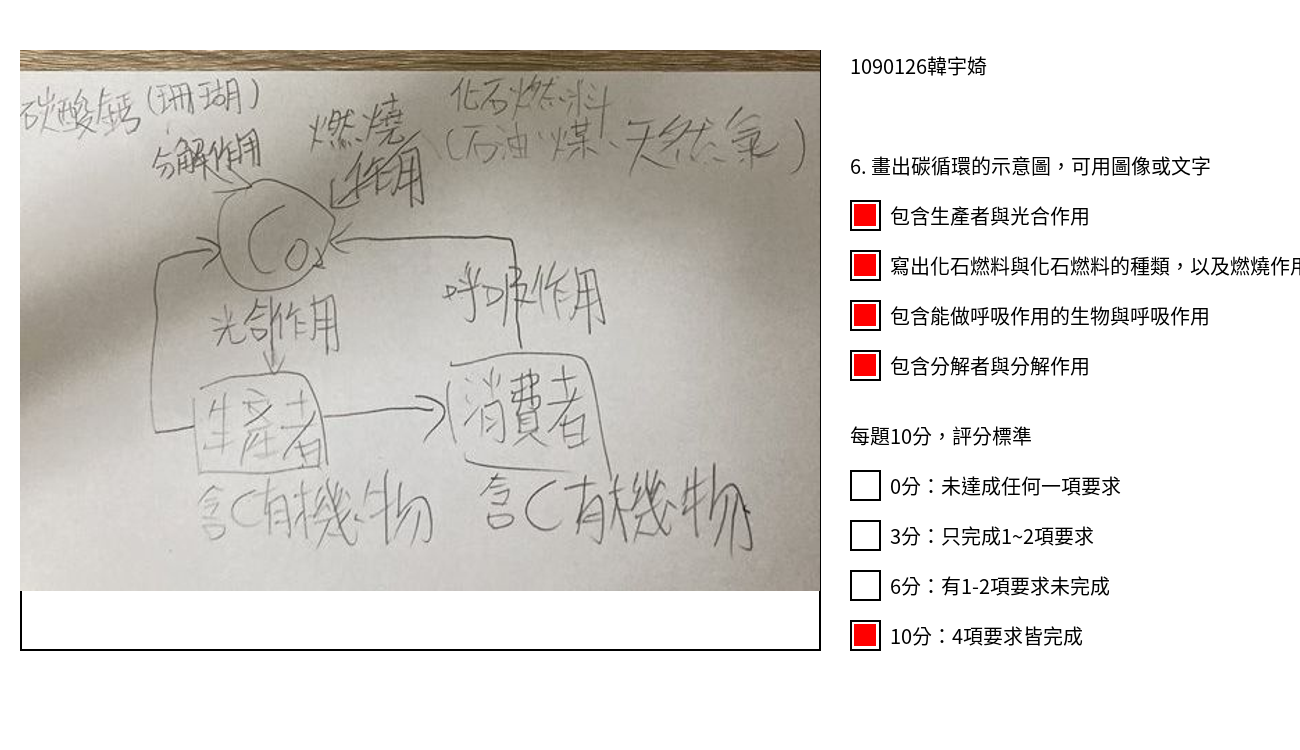 碳酸鈣(珊瑚)
分解作用
燃燒
作用
化石燃料
(石油、煤、天然氣)
CO2
光合作用
呼吸作用
生產者
消費者
含C有機物
含C有機物
1090126韓宇婍
6. 畫出碳循環的示意圖，可用圖像或文字
包含生產者與光合作用
寫出化石燃料與化石燃料的種類，以及燃燒作用
包含能做呼吸作用的生物與呼吸作用
包含分解者與分解作用
每題10分，評分標準
0分：未達成任何一項要求
3分：只完成1~2項要求
6分：有1-2項要求未完成
10分：4項要求皆完成